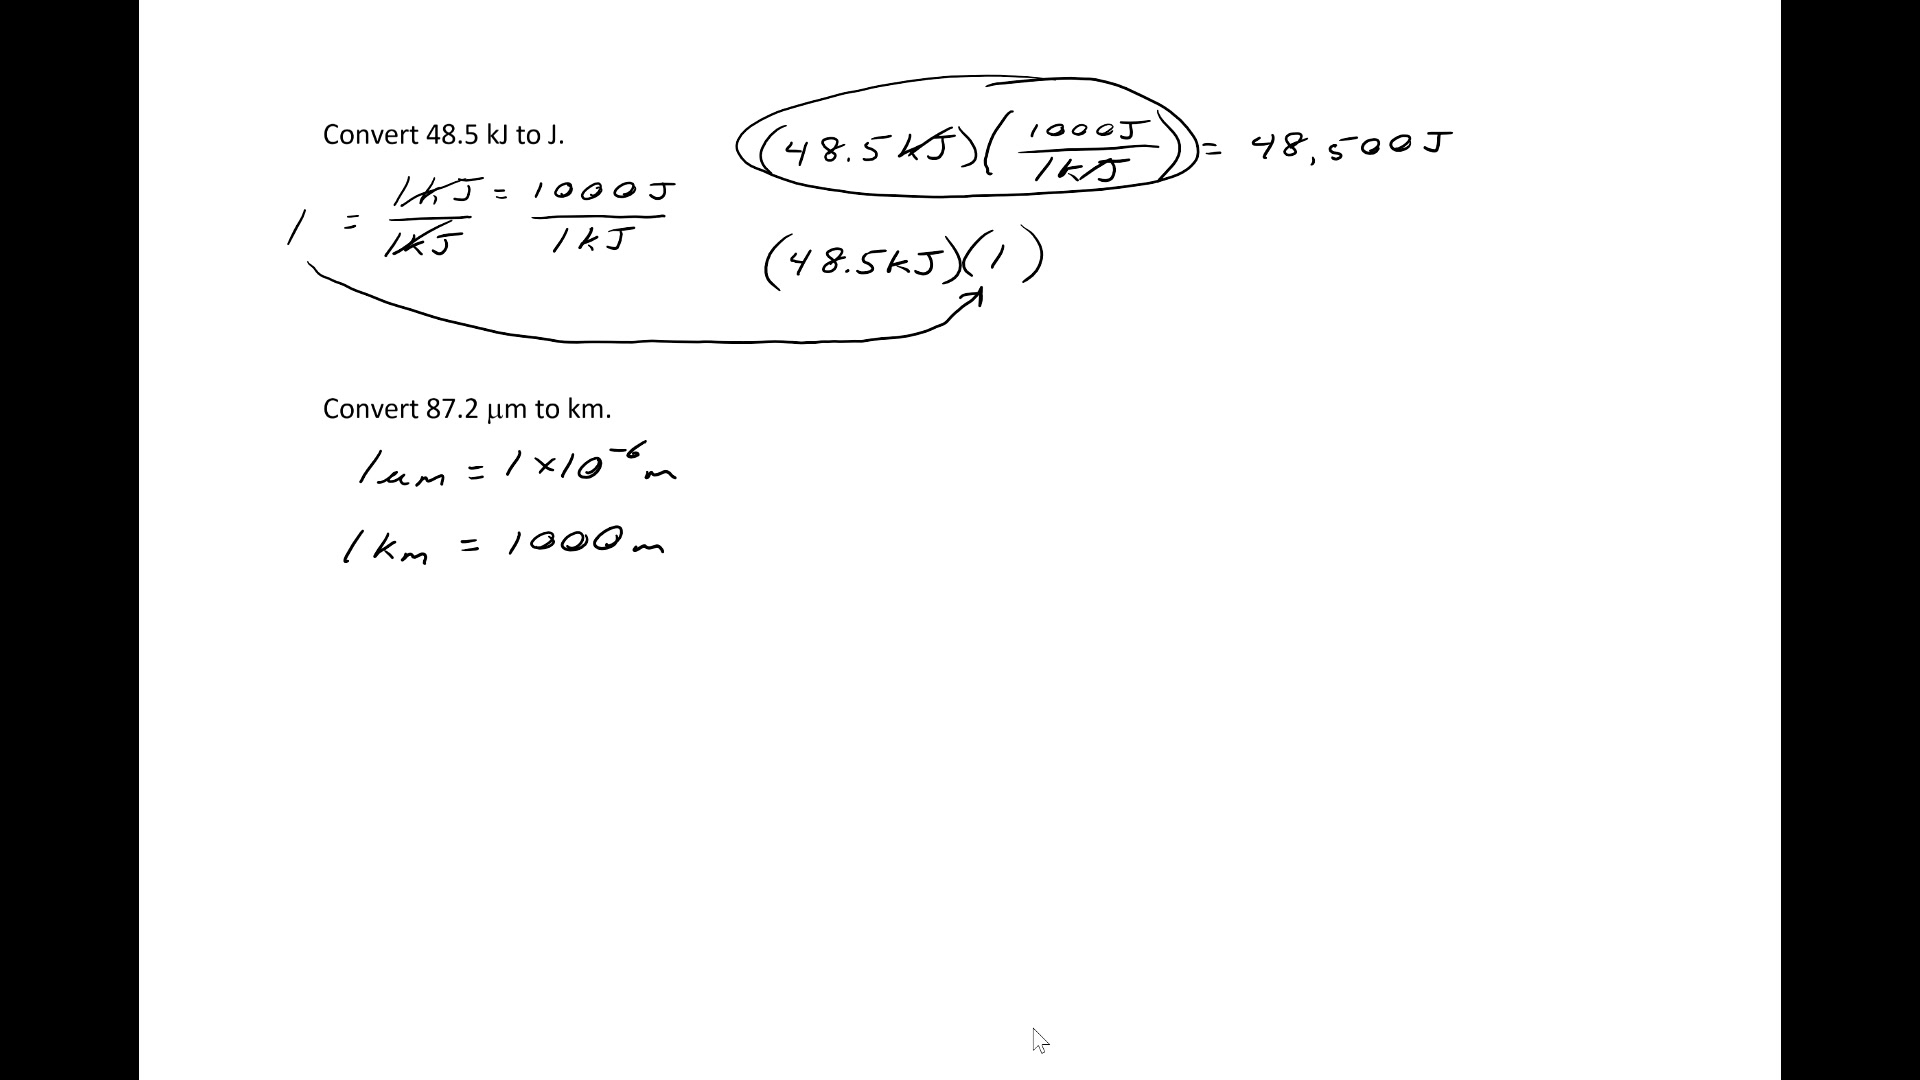 Convert 48.5 kJ to J.
(48.5 kJ)(1000J/1kJ) = 48,500J
1 = 1kJ/1kJ = 1000J/1kJ
(48.5kJ)(1)
Convert 87.2 μm to km.
1um = 1×10⁻⁶m
1km = 1000m